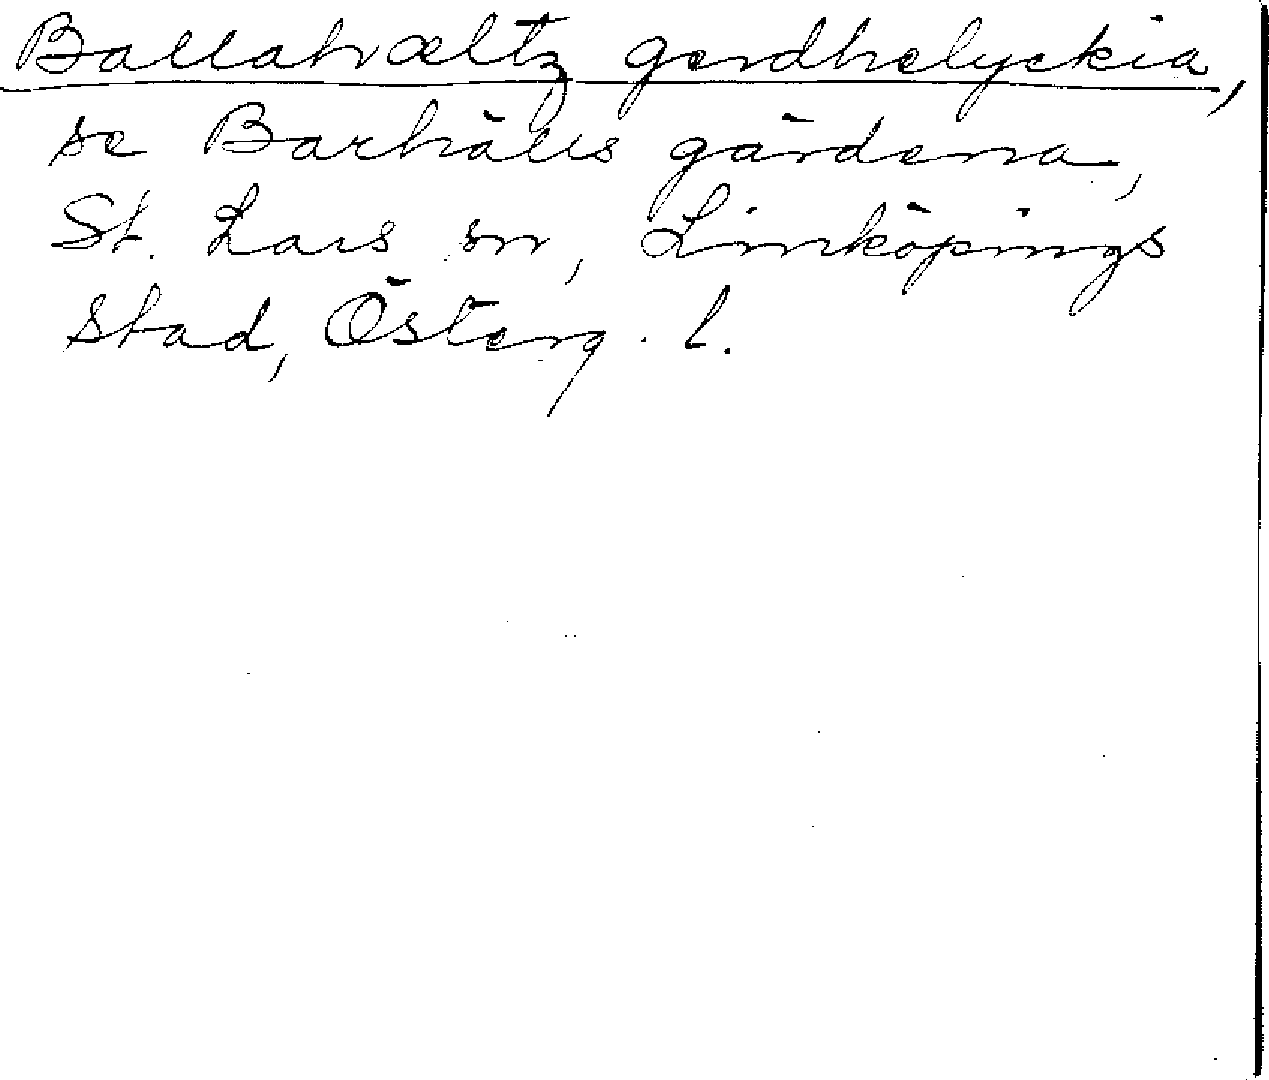 Ballahæltz gerdhelyckia,
se Barhälls gärdena,
St. Lars sn, Linköpings
stad, Österg. l.